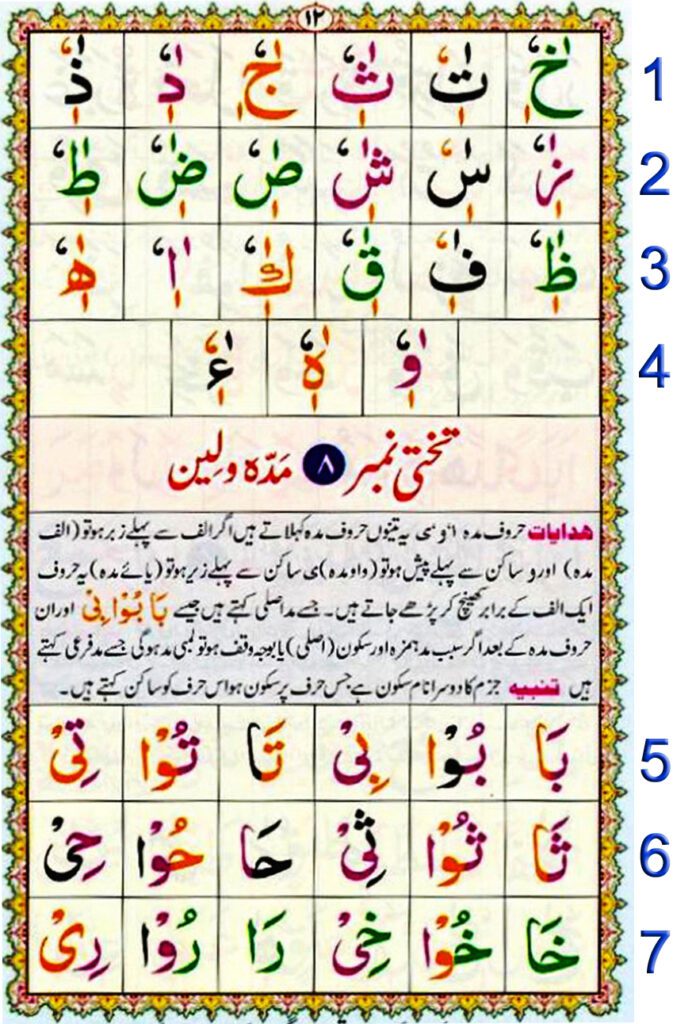 ١٢
خٰٖٗ تٰٖٗ ثٰٖٗ جٰٖٗ دٰٖٗ ذٰٖٗ 1
زٰٖٗ سٰٖٗ شٰٖٗ صٰٖٗ ضٰٖٗ طٰٖٗ 2
ظٰٖٗ فٰٖٗ قٰٖٗ كٰٖٗ اٰٖٗ هٰٖٗ 3
وٰٖٗ ہٰٖٗ ءٰٖٗ 4
تختی نمبر ۸ مَدّہ و لِین
ھدایات حروف مدہ ا و ی یہ تینوں حروف مدہ کہلاتے ہیں اگر الف سے پہلے زبر ہو تو (الف
مدہ) اور و ساکن سے پہلے پیش ہو تو (واو مدہ) ی ساکن سے پہلے زیر ہو تو (یائے مدہ) یہ حروف
ایک الف کے برابر کھینچ کر پڑھے جاتے ہیں۔ جسے مد اصلی کہتے ہیں جیسے بَا بُوْا بِیْ اور ان
حروف مدہ کے بعد اگر سبب مد ہمزہ اور سکون (اصلی) یا بوجہ وقف ہو تو لمبی مد ہوگی جسے مد فرعی کہتے
ہیں تنبیہ جزم کا دوسرا نام سکون ہے جس حرف پر سکون ہو اس حرف کو ساکن کہتے ہیں۔
بَا بُوْا بِیْ تَا تُوْا تِیْ 5
ثَا ثُوْا ثِیْ حَا حُوْا حِیْ 6
خَا خُوْا خِیْ رَا رُوْا رِیْ 7